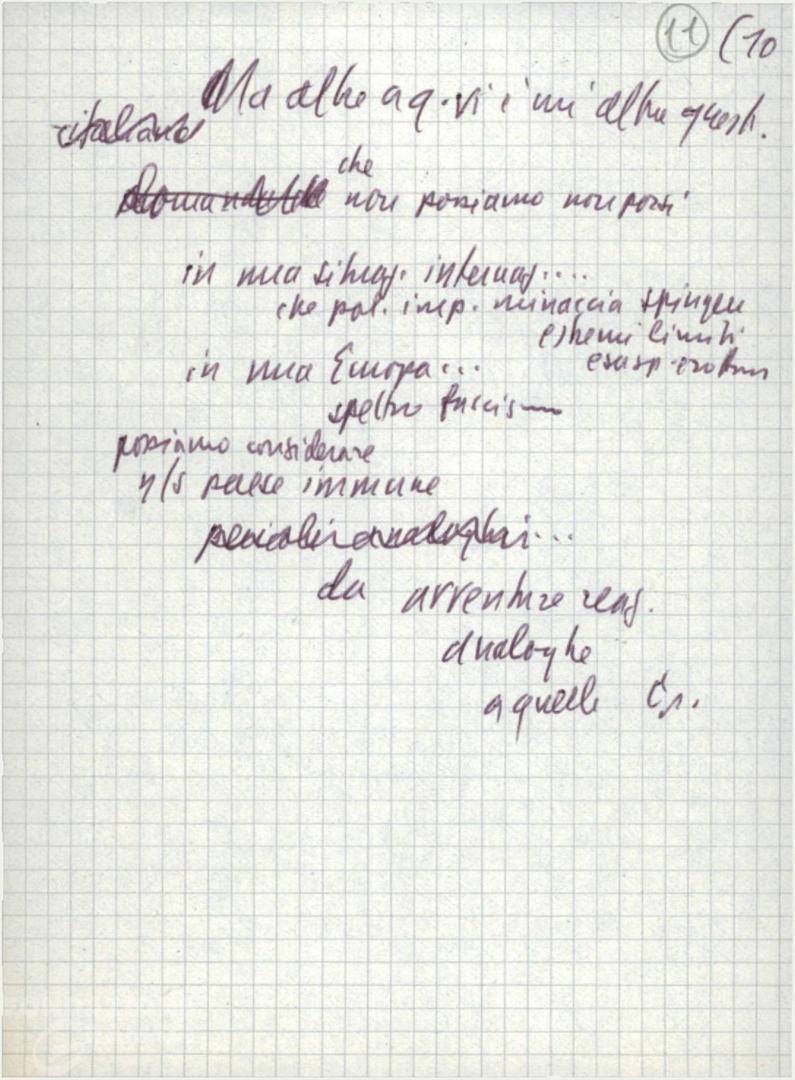 11 (10
Ma altre a q. vi è un'altra quest.
italiano
che
Domande non possiamo non porci
in una situaz. internaz....
che pol. imp. minaccia spingere
estremi limiti
in una Europa...
spettro fascismo
possiamo considerare
n/s paese immune
pericoli analoghi...
da avventure reaz.
analoghe
a quelle